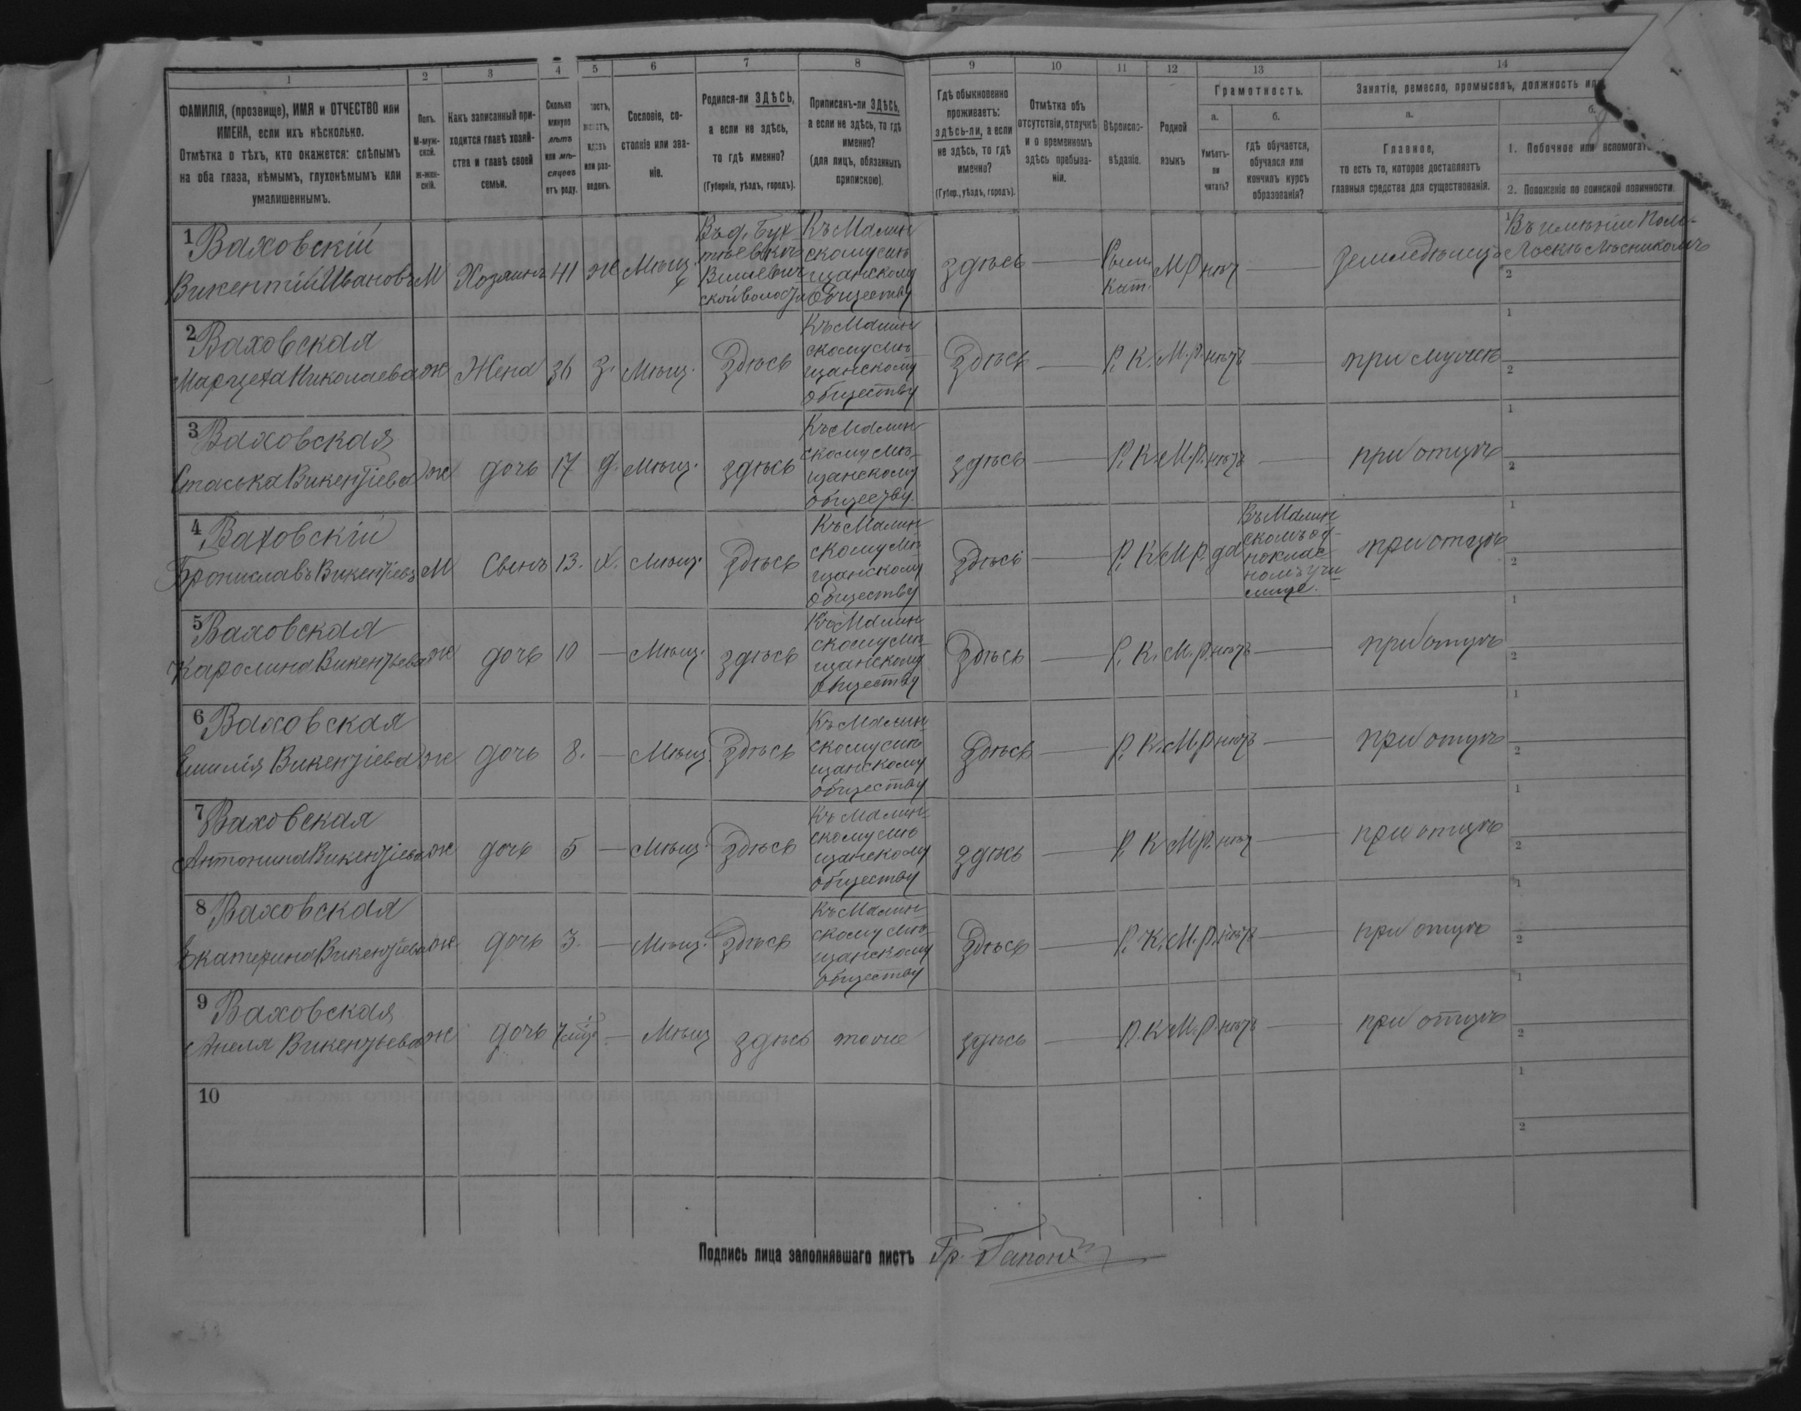 1 2 3 4 5 6 7 8 9 10 11 12 13 14
ФАМИЛІЯ, (прозвище), ИМЯ и ОТЧЕСТВО или
ИМЕНА, если ихъ нѣсколько.
Отмѣтка о тѣхъ, кто окажется: слѣпымъ
на оба глаза, нѣмымъ, глухонѣмымъ или
умалишеннымъ.
Полъ.
М-муж-
ской.
Ж-жен-
скій.
Какъ записанный при-
ходится главѣ хозяй-
ства и главѣ своей
семьи.
Сколько
минуло
лѣтъ
или мѣ-
сяцевъ
отъ роду.
или раз-
веденъ.
Сословіе, со-
стояніе или зва-
ніе.
Родился-ли ЗДѢСЬ,
а если не здѣсь,
то гдѣ именно?
(Губернія, уѣздъ, городъ).
Приписанъ-ли ЗДѢСЬ,
а если не здѣсь, то гдѣ
именно?
(для лицъ, обязанныхъ
припискою).
Гдѣ обыкновенно
проживаетъ:
здѣсь-ли, а если
не здѣсь, то гдѣ
именно?
(Губер., уѣздъ, городъ).
Отмѣтка объ
отсутствіи, отлучкѣ
и о временномъ
здѣсь пребыва-
ніи.
Вѣроиспо-
вѣданіе.
Родной
языкъ
Грамотность.
а.
Умѣетъ-
ли
читать?
б.
гдѣ обучается,
обучался или
кончилъ курсъ
образованія?
Занятіе, ремесло, промыселъ, должность или
а.
Главное,
то есть то, которое доставляетъ
главныя средства для существованія.
б.
1. Побочное или вспомогат
2. Положеніе по воинской повинности.
1 Ваховскій
Викентій Ивановъ М Хозяинъ 41 ж Мѣщ.
Волости
Къ Малин
скому мѣ
щанскому
обществу
здѣсь — Рим. Кат. М.Р нѣт — Земледѣлецъ
1 Въ имѣніи
Лѣсникомъ
2
2 Ваховская
Николаева ж Жена 36 З. Мѣщ. Здѣсь
Къ Малин
скому мѣ
щанскому
обществу
Здѣсь — Р. К. М.Р. нѣтъ — при мужѣ
1
2
3 Ваховская
Стаська Викентіева ж дочь 17 д. Мѣщ. здѣсь
Къ Малин
скому мѣ
щанскому
обществу.
здѣсь — Р. К. М.Р. нѣтъ — при отцѣ
1
2
4 Ваховскій
Брониславъ Викентіевъ М Сынъ 13. х. Мѣщ. Здѣсь
Къ Малин
скому мѣ
щанскому
обществу
Здѣсь — Р. К. М.Р. да
Въ Малин
скомъ од-
нокла
номъ учи-
лище.
при отцѣ
1
2
5 Ваховская
Каролина Викентьева ж дочь 10 — Мѣщ. здѣсь
Къ Малин
скому мѣ
щанскому
обществу
Здѣсь — Р. К. М.Р. нѣтъ — при отцѣ
1
2
6 Ваховская
Емилія Викентіева ж дочь 8. — Мѣщ. Здѣсь
Къ Малин
скому мѣ
щанскому
обществу
Здѣсь — Р. К. М.Р. нѣтъ — при отцѣ
1
2
7 Ваховская
Антонина Викентіева ж дочь 5 — Мѣщ. Здѣсь
Къ Малин
скому мѣ
щанскому
обществу
здѣсь — Р. К. М.Р. нѣт — при отцѣ
1
2
8 Ваховская
Екатерина Викентіева ж дочь 3. — Мѣщ. Здѣсь
Къ Малин
скому мѣ
щанскому
обществу
Здѣсь — Р. К. М.Р. нѣтъ — при отцѣ
1
2
9 Ваховская
Анеля Викентьева ж дочь 7 — Мѣщ здѣсь тоже здѣсь — Р. К. М.Р. нѣтъ — при отцѣ
1
2
10
1
2
Подпись лица заполнявшаго листъ Гр.